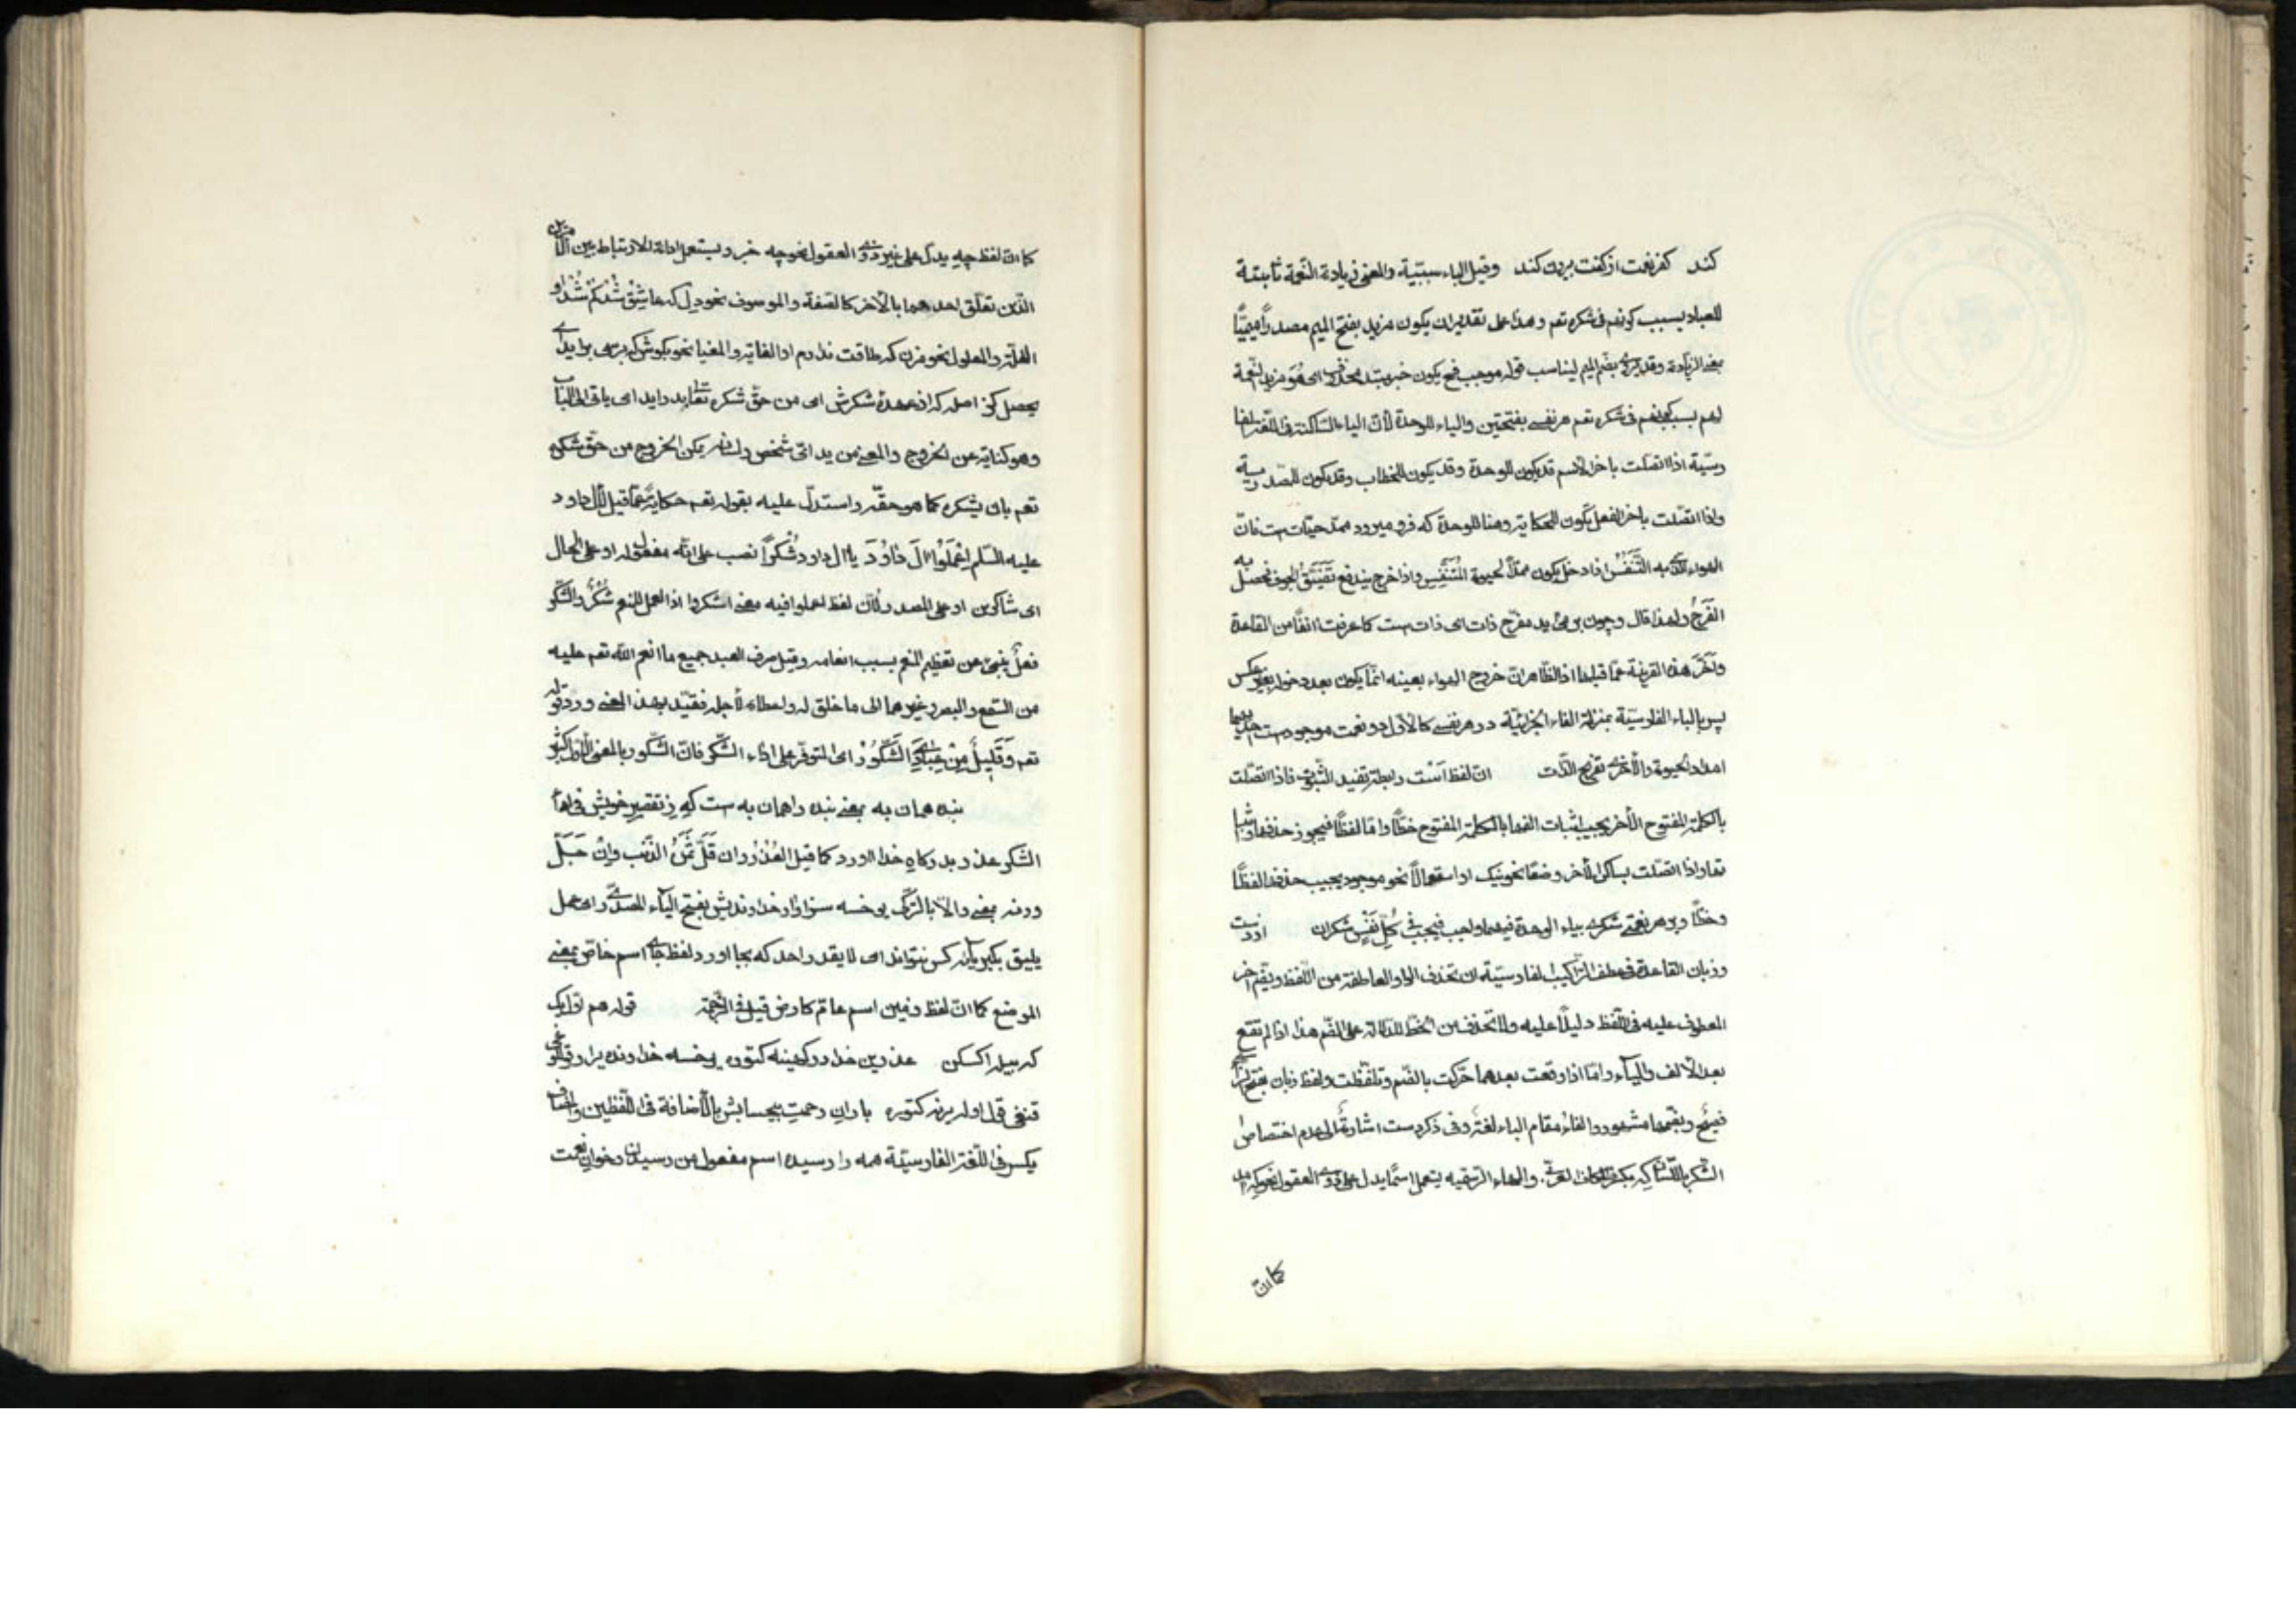 كند كفر نعمت از كفت بيرون كند وقيل الباء سببيّة والمعنى زيادة النّعمة ثابتة
للعباد بسبب كونهم فى شكره تعم وهذا على تقدير ان يكون مزيد بفتح الميم مصدرًا ميميًّا
بمعنى الزيادة وقد يقرئ بضمّ الميم ليناسب قوله موجب فح يكون خبر مبتدأ محذوف اى هُوَ مزيد النّعمة
لهم بسبب كونهم فى شكره تعم هر نفسى بفتحتين والياء للوحدة لأنّ الياء السّاكنة فى اللّغة الفا
رسيّة اذا اتّصلت باخر الاسم قد يكون للوحدة وقد يكون للخطاب وقد يكون للمصدرية
واذا اتّصلت باخر الفعل يكون للحكاية وهنا للوحدة كه فرو ميرود ممدّ حيات ست فانّ
الهواء الّذى به التَّنَفُّسُ اذا دخل يكون ممدًّا لحيوة المُتَنَفِّسِ واذا خرج يندفع تَضَيُّقُ الجوف فحصل به
الفَرَحُ ولهذا قال وچون بر مى آيد مفرّح ذات اى ذات ست كما عرفت انفًا من القاعدة
وأخّر هذه القرينة عمّا قبلها اذ الظّاهر انّ خروج الهواء بعينه انّما يكون بعد دخوله بغير عكس
پس بالباء الفارسيّة بمنزلة الفاء الجزائيّة در هر نفسى كالاوّل دو نعمت موجودست احديهما
امداد الحيوة والأخرى تفريح الذّات انّ لفظ اَسْت رابطة تفيد الثّبوت فاذا اتّصلت
بالكلمة المفتوح الأخر يجيب اثبات الفها بالكلمة المفتوح خطًّا وامّا لفظًا فيجوز حذفها واثبا
تها واذا اتّصلت بساكن الأخر وضعًا نحو نيك او استعمالًا نحو موجود يجيب حذفها لفظًا
وخطًّا وبر هر نعمتى شكرى بياء الوحدة فيهما واجب فيجب فى كُلِّ نَفْسٍ شكران از دست
وزبان القاعدة فى عطف التّراكيب الفارسيّة ان تحذف الواو العاطفة من اللّفظ ويضمّ اخر
المعطوف عليه فى اللّفظ دليلًا عليه ولا تحذف من الخطّ للدّلالة على الضّم هذا اذا لم تقع
بعد الألف والياء وامّا اذا وقعت بعدهما حرّكت بالضّم وتلفّظت ولفظ زبان بفتح الزّا
فصيح وبضمّها مشهور والفاء مقام الباء لغة وفى ذكر دست اشارة الى عدم اختصاص
الشّكر باللّسان كه بكسر الكاف العربى والهاء الرّسميه يستعمل اسمًا يدل على ذوى العقول نحو كه آمد
كما انّ
كما انّ لفظ چه يدلّ على غير ذوى العقول نحو چه خبر ويستعمل اداة للارتباط بين الأمرين
الّذين تعلّق احدهما بالأخر كالصّفة والموصوف نحو دل كه عاشِقْ شُدْ كُمْ شُدْ او
العلّة والمعلول نحو مزن كه طاقت ندارم او الغاية والمغيا نحو بكوش كه برسى برايد اى
يحصل كز اصله كه از عهدهٔ شكرش اى من حقّ شكره تعالى بدر ايد اى ياتى الى الباب
وهو كناية عن الخروج والمعنى من يد اىّ شخص ولسانه يمكن الخروج من حقّ شكره
تعم بان يشكره كما هو حقّه واستدلّ عليه بقوله تعم حكاية عمّا قيل لأل داود
عليه السّلم اِعْمَلُوا اٰلَ دَاوُدَ يا ال داود شُكْرًا نصب على انّه مفعول له او على الحال
اى شاكرين او على المصدر لأنّ لفظ اعملوا فيه معنى اشكروا اذ العمل للمنعم شُكْرٌ والشّكر
فعلٌ ينبئ عن تعظيم المنعم بسبب انعامه وقيل صرف العبد جميع ما انعم اللّه تعم عليه
من السّمع والبصر وغيرهما الى ما خلق له واعطاه لأجله فقيّد بهذا المعنى ورد قوله
تعم وَقَلِيلٌ مِنْ عِبَادِىَ الشَّكُورُ اى المتوفّر على اداء الشّكر فانّ الشّكور بالمعنى الاوّل كثير
بنده همان به بمعنى بنده را همان به ست كه ز تقصير خويش فى اداء
الشّكر عذر بدركاهِ خدا اورد كما قيل العُذْرُ وان قَلَّ ثَمَنُ الذّنب وانْ جَلَّ
ورنه بمعنى والّا بالتركى يوخسه سزاوار خداونديش بفتح الياء المصدرى اى عمل
يليق بكبريائه كس نتواند اى لا يقدر احد كه بجا اورد لفظ جاى اسم خاصّ بمعنى
الموضع كما انّ لفظ زمين اسم عامّ كارض قيل فى التّرجمة قوله هم لوليك
كه بيله اكسكن عذرين خدا دركهينه كتوره يوخسه خداوندينه يراو قوللوغى
قنغى قل اوله يرينه كتوره بارانِ رحمتِ بيحسابش بالأضافة فى اللّفظين والمضاف
يكسر فى اللّغة الفارسيّة همه را رسيده اسم مفعول من رسيدن وخوانِ نعمت